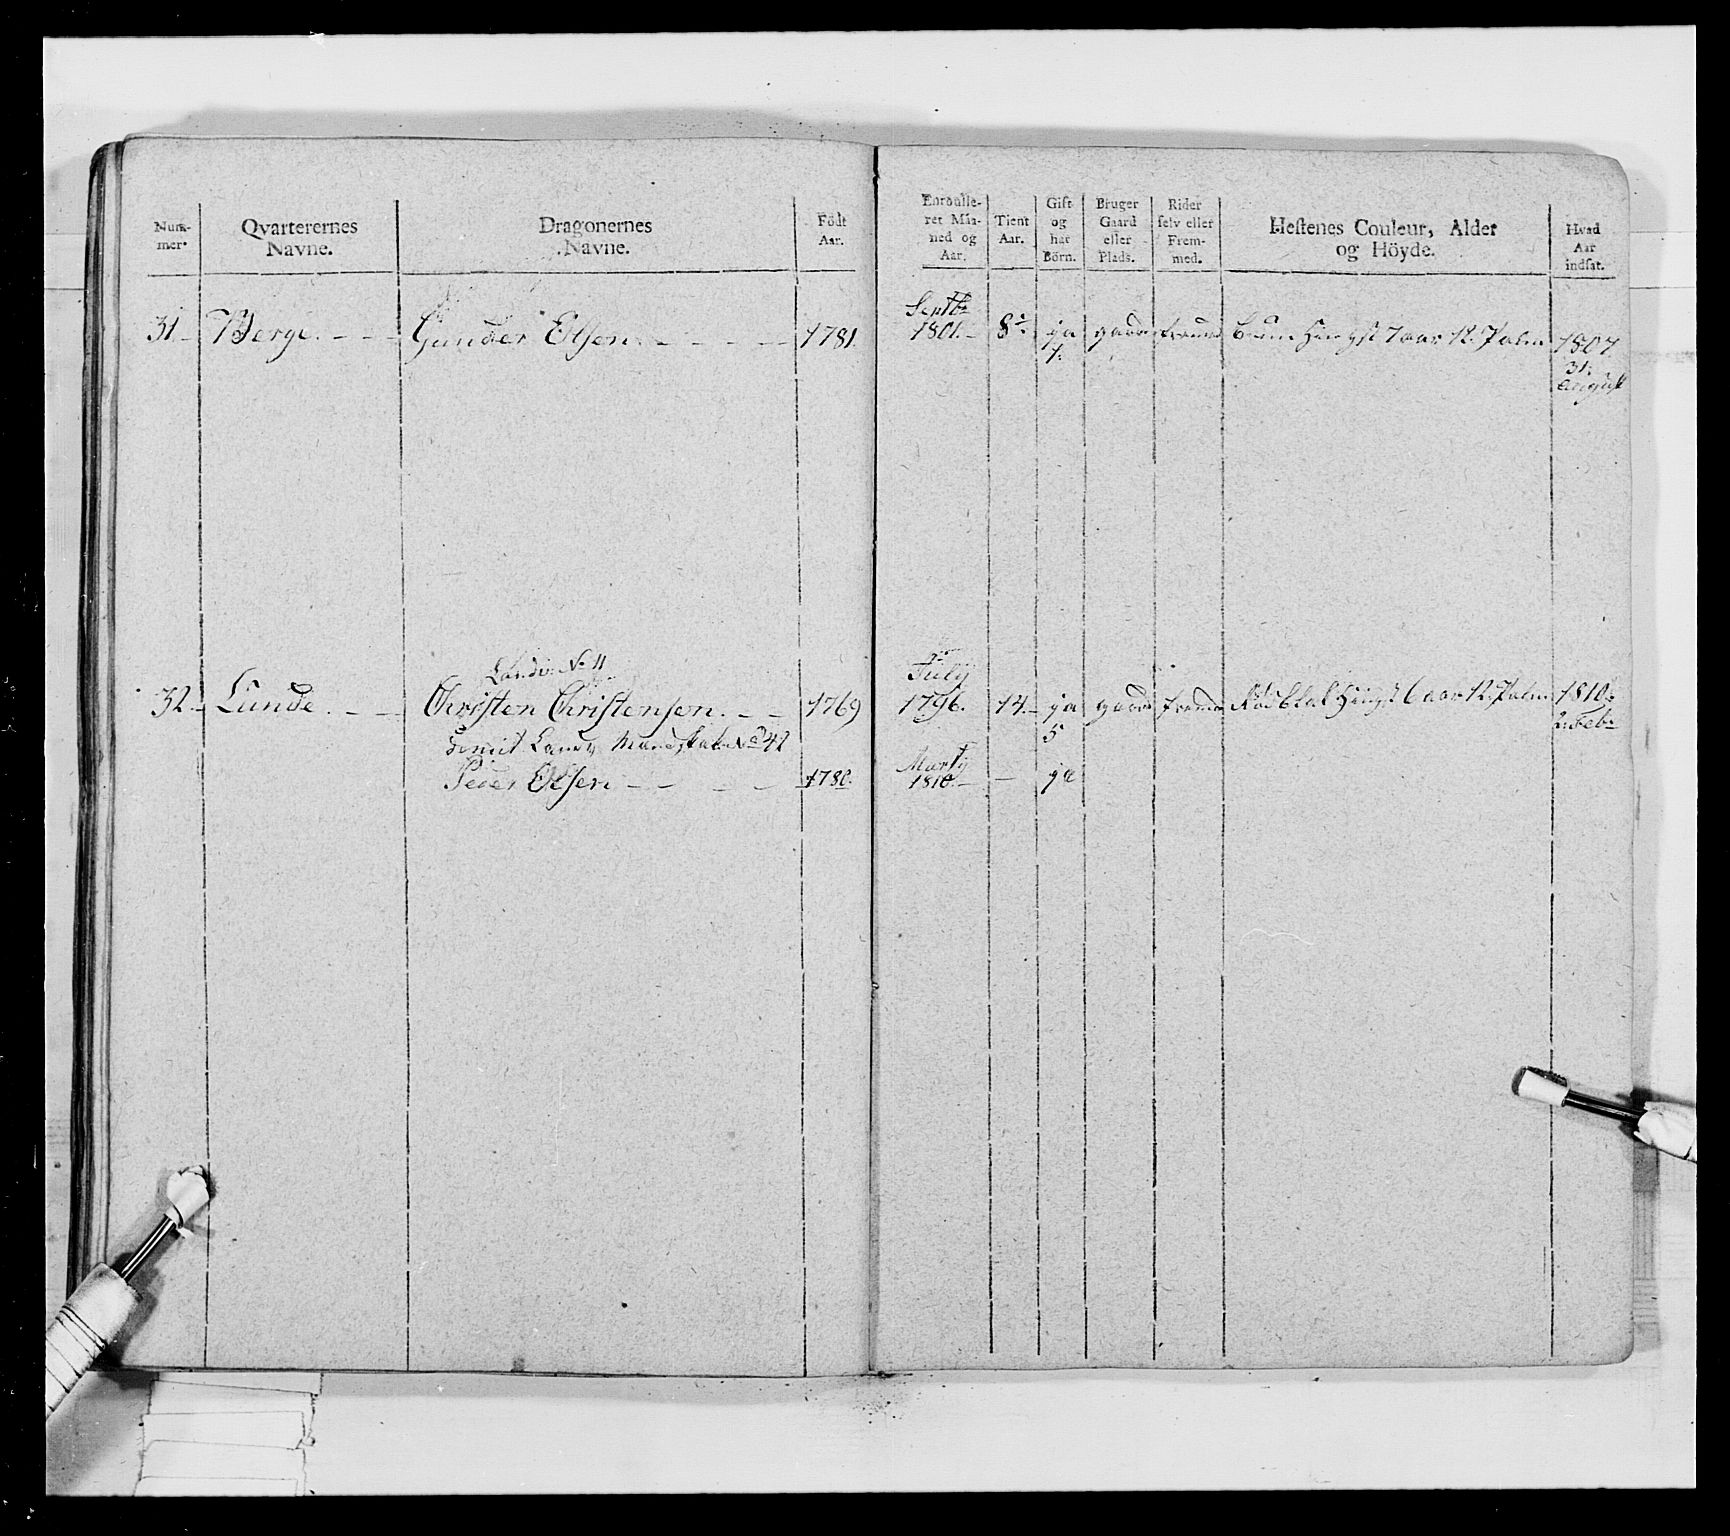 Num-
mer.
Qvarterernes
Navne.
Dragonernes
Navne.
Födt
Aar.
Enroulle-
ret Maa-
ned og
Aar.
Tient
Aar.
Gift
og
har
Börn.
Bruger
Gaard
eller
Plads.
Rider
selv eller
Frem-
med.
Hestenes Couleur, Alder
og Höyde.
Hvad
Aar
indsat.
31. Berge. Gunder Olsen 1781. Septbr 1801. 8. ja gaard fremed Bruun Hingst 7 aar 12. Palm 1807.
1.
31.
August
Landv. No 11
32. Lunde. Christen Christensen. 1769 July 1796. 14. ja gaard fremed Rödblak Hingst 6 aar 12. Palm 1810.
5
2. Febr
dimit Landv Mandskab No 42
Peder Olsen 1780. Marty 1810. ja